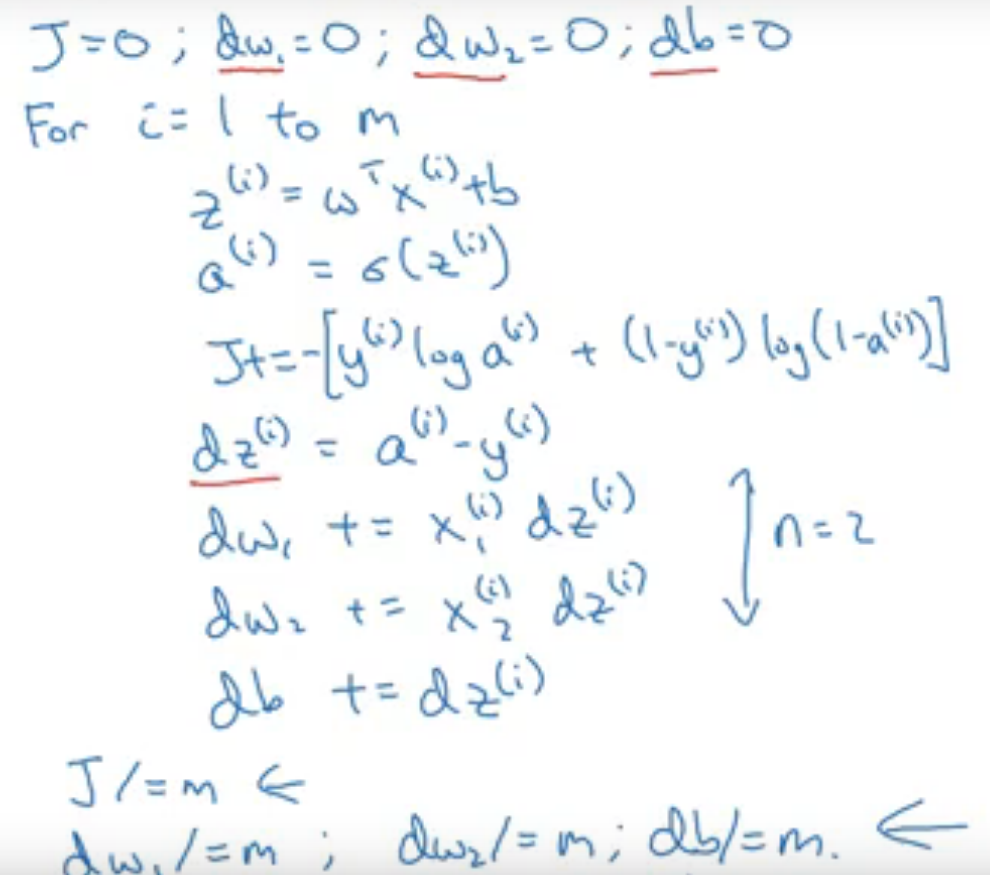 J=0 ; dw₁=0 ; dw₂=0 ; db=0
For i=1 to m
z⁽ⁱ⁾ = ωᵀx⁽ⁱ⁾+b
a⁽ⁱ⁾ = σ(z⁽ⁱ⁾)
J+=-[y⁽ⁱ⁾ log a⁽ⁱ⁾ + (1-y⁽ⁱ⁾) log(1-a⁽ⁱ⁾)]
dz⁽ⁱ⁾ = a⁽ⁱ⁾-y⁽ⁱ⁾
dw₁ += x₁⁽ⁱ⁾ dz⁽ⁱ⁾
n=2
dw₂ += x₂⁽ⁱ⁾ dz⁽ⁱ⁾
db += dz⁽ⁱ⁾
J/=m ←
dw₁/=m ; dw₂/=m ; db/=m. ←